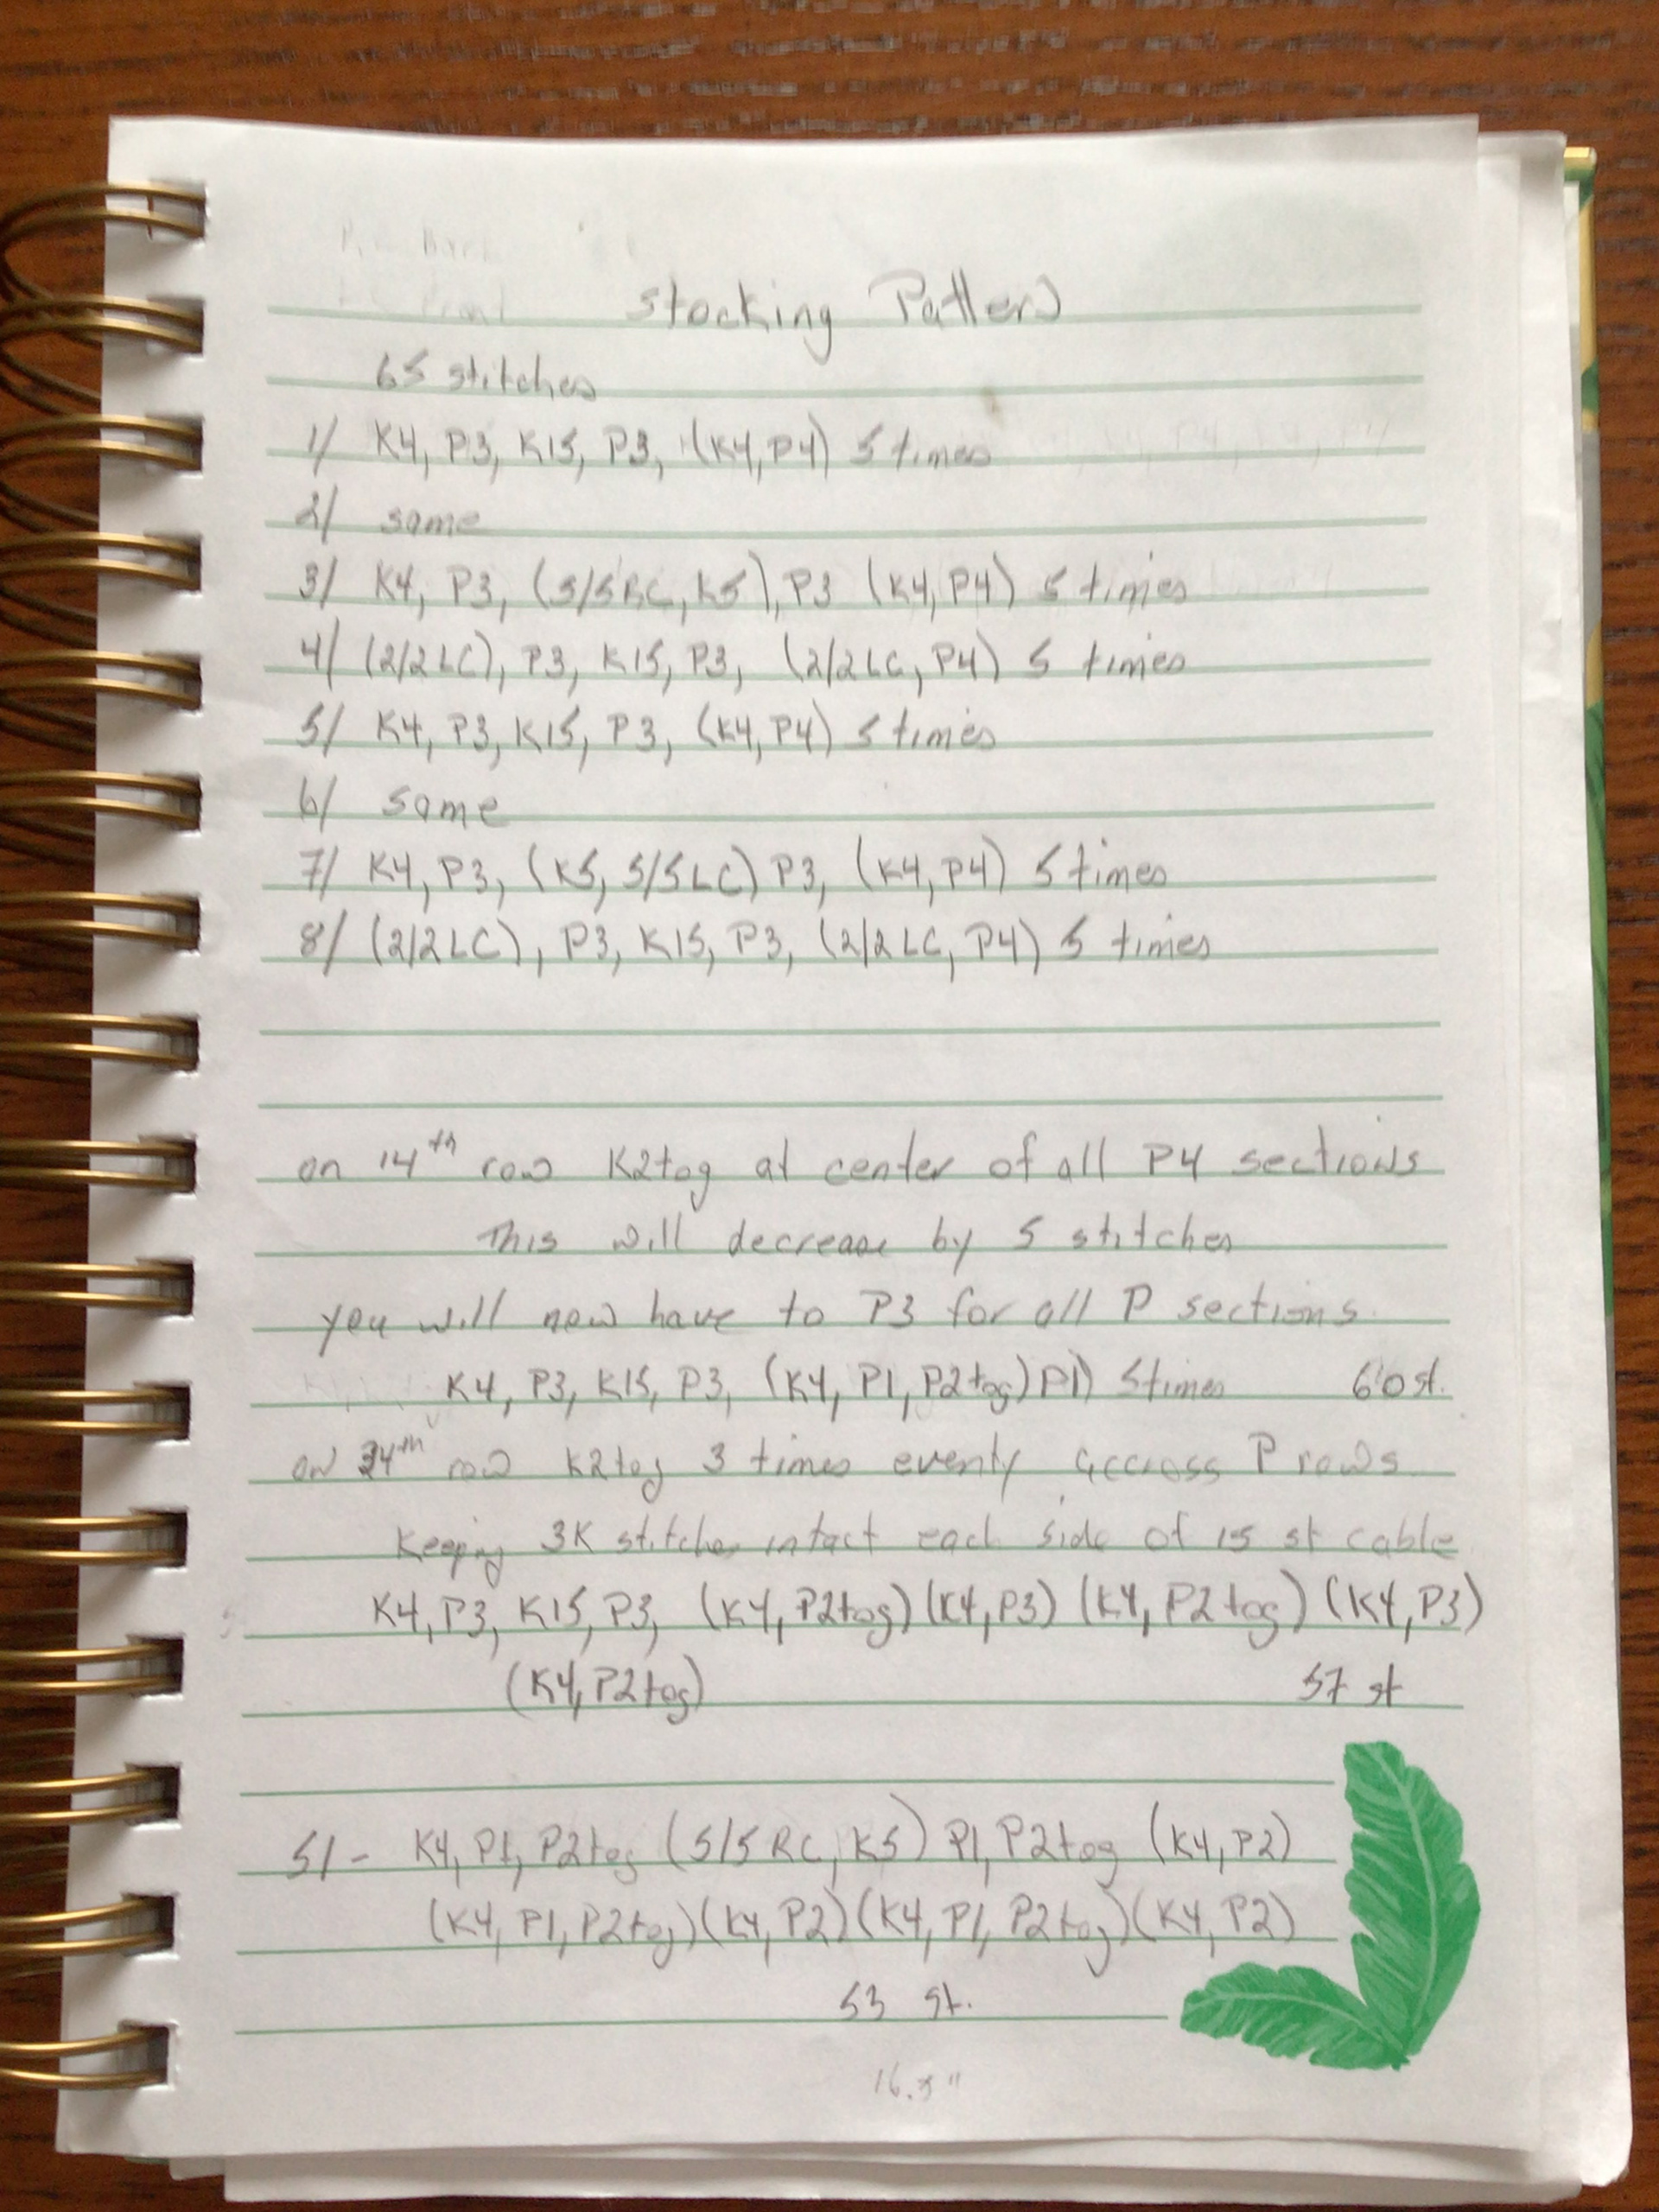 Stocking Pattern
65 stitches
1/ K4, P3, K15, P3, (K4, P4) 5 times
2/ same
3/ K4, P3, (5/5 RC, K5), P3 (K4, P4) 5 times
4/ (2/2 LC), P3, K15, P3, (2/2 LC, P4) 5 times
5/ K4, P3, K15, P3, (K4, P4) 5 times
6/ same
7/ K4, P3, (K5, 5/5 LC) P3, (K4, P4) 5 times
8/ (2/2 LC), P3, K15, P3, (2/2 LC, P4) 5 times
on 14th row K2tog at center of all P4 sections
This will decrease by 5 stitches
you will now have to P3 for all P sections.
K4, P3, K15, P3, (K4, P1, P2tog) P1) 5 times 60 st.
on 34th row K2tog 3 times evenly accross P rows
Keeping 3K stitches intact each side of 15 st cable
K4, P3, K15, P3, (K4, P2tog) (K4, P3) (K4, P2tog) (K4, P3)
(K4, P2tog) 57 st
51 - K4, P1, P2tog (5/5 RC, K5) P1, P2tog (K4, P2)
(K4, P1, P2tog) (K4, P2) (K4, P1, P2tog) (K4, P2)
53 st.